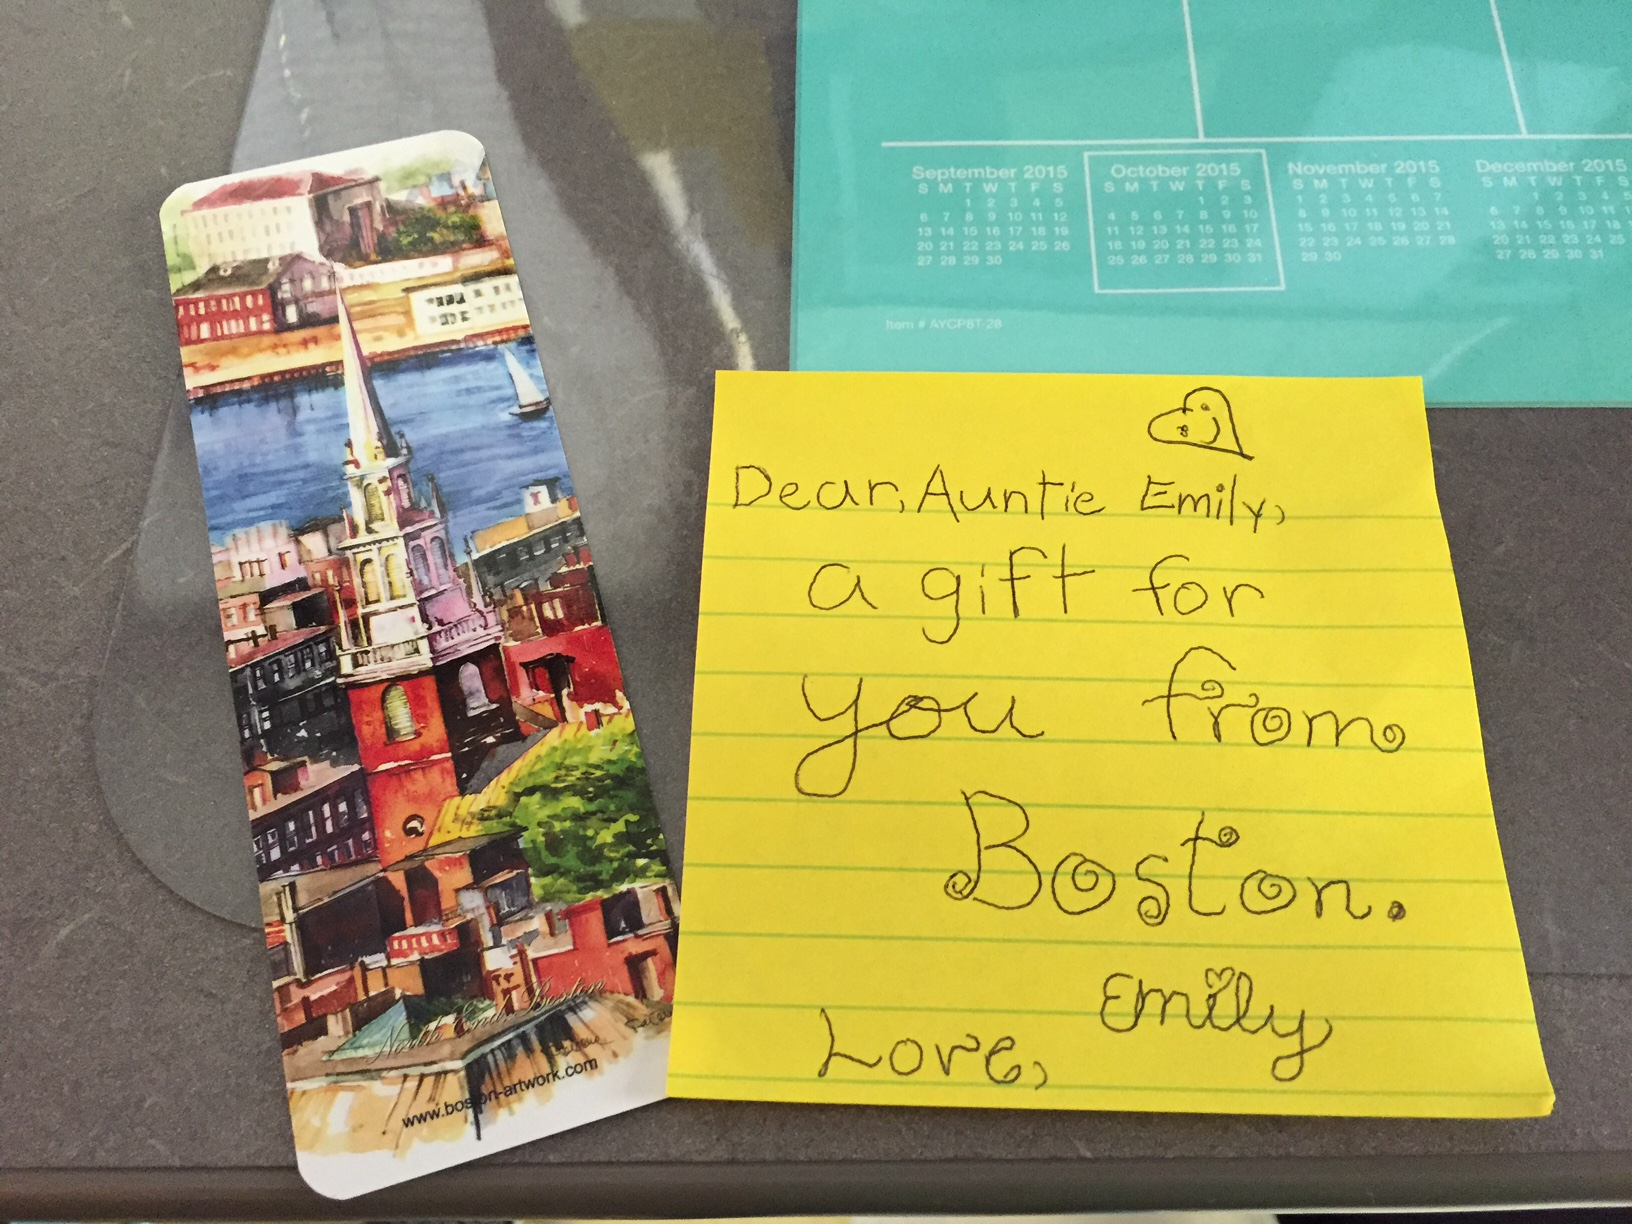 September 2015
S M T W T F S
1 2 3 4 5
6 7 8 9 10 11 12
13 14 15 16 17 18 19
20 21 22 23 24 25 26
27 28 29 30
October 2015
S M T W T F S
1 2 3
4 5 6 7 8 9 10
11 12 13 14 15 16 17
18 19 20 21 22 23 24
25 26 27 28 29 30 31
November 2015
S M T W T F S
1 2 3 4 5 6 7
8 9 10 11 12 13 14
15 16 17 18 19 20 21
22 23 24 25 26 27 28
29 30
December 2015
S M T W T F S
1 2 3 4 5
6 7 8 9 10 11
13 14 15 16 17 18
20 21 22 23 24 25
27 28 29 30 31
Item # AYCP8T-28
Dear, Auntie Emily,
a gift for
you from
Boston.
Love, Emily
North End, Boston
www.boston-artwork.com